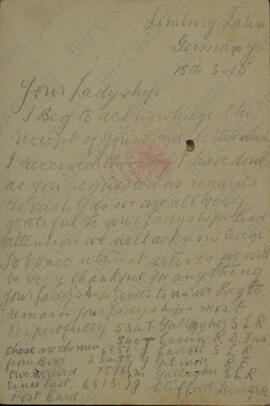 Limburg Lahn
Germany
18th 3-15
Your Ladyship
I Beg to acknowledge the
receipt of your letter which
I received I have done
as you requested as regards
the we are all very
grateful to your Ladyships kind
attention we will acknowledge
Tobacco when it arrives we will
be very thankful for anything
your Ladyship sends to us we Beg to
remain your Ladyships most
Respectfully T Gallagher S L R
those are the men Cassin R D Fus
6851 J Carroll S L R
from Birr
two arrived Gallagher S L R
since last 6813 J Clifford
Post Card